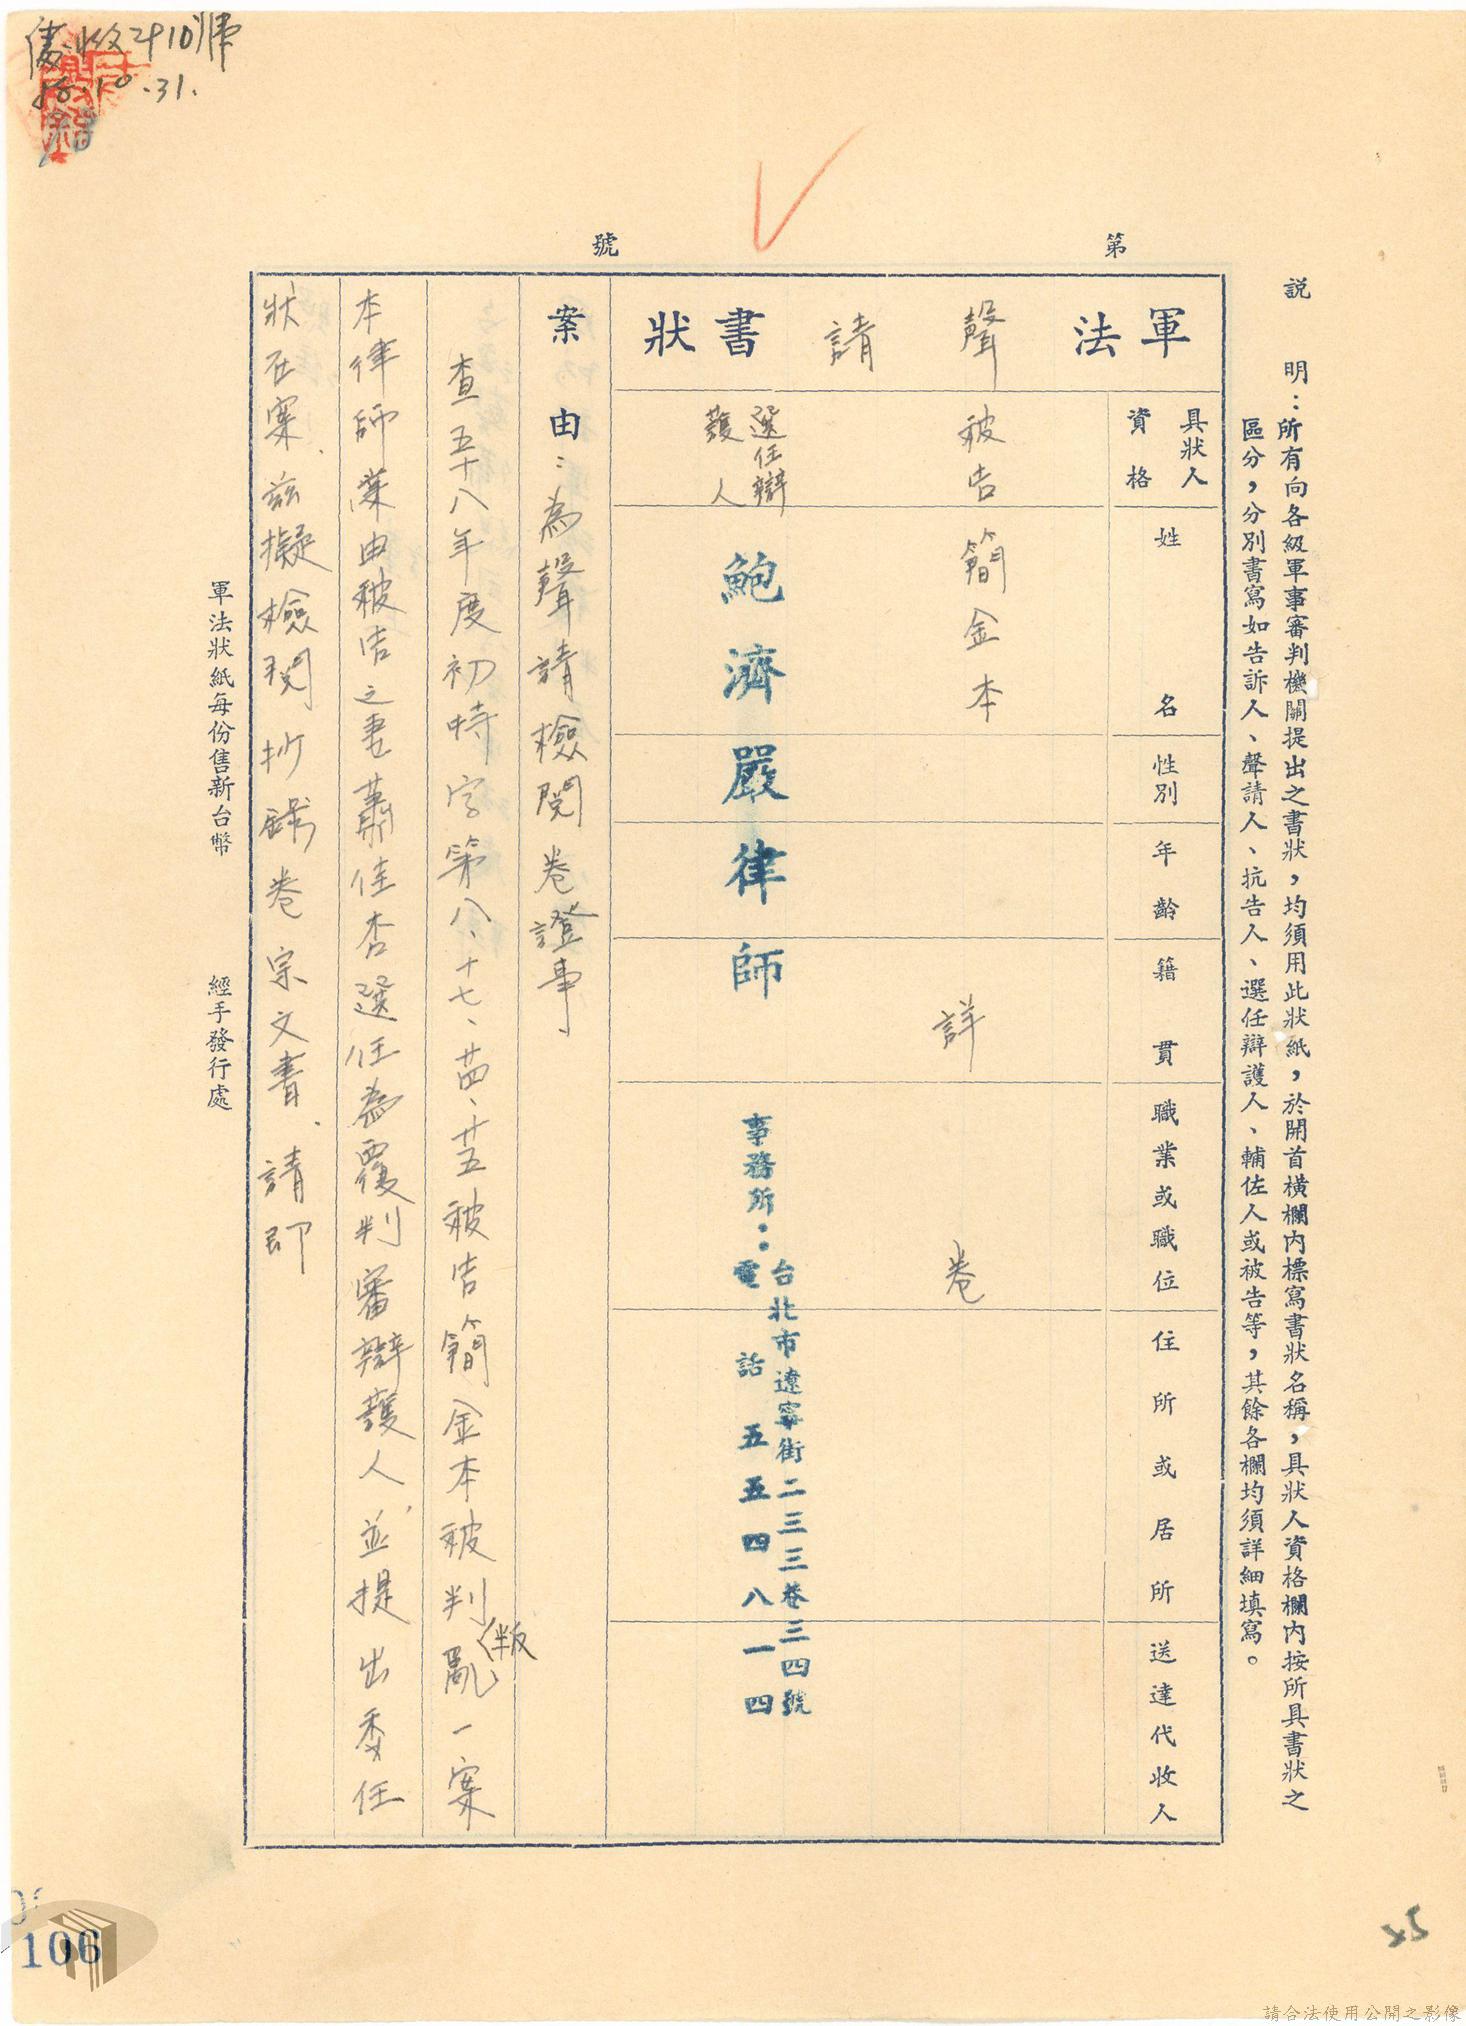 58.10.31.
第　號
說　明：所有向各級軍事審判機關提出之書狀，均須用此狀紙，於開首橫欄內標寫書狀名稱，具狀人資格欄內按所具書狀之
區分，分別書寫如告訴人、聲請人、抗告人、選任辯護人、輔佐人或被告等，其餘各欄均須詳細填寫。
軍法聲請書狀
具狀人
資格
姓名
性別
年齡
籍貫
職業或職位
住所或居所
送達代收人
被告
簡金本
詳卷
選任辯
護人
鮑濟嚴律師
事務所：
台北市遼寧街二三三巷三四號
電話五五四八一四
案由：為聲請檢閱卷證事
查五十八年度初特字第八、十七、廿四、廿五被告簡金本被判亂一案
叛
本律師業由被告之妻蕭佳杏選任為覆判審辯護人，並提出委任
狀在案、茲擬檢閱抄錄卷宗文書、請即
軍法狀紙每份售新台幣　經手發行處
106
25
請合法使用公開之影像